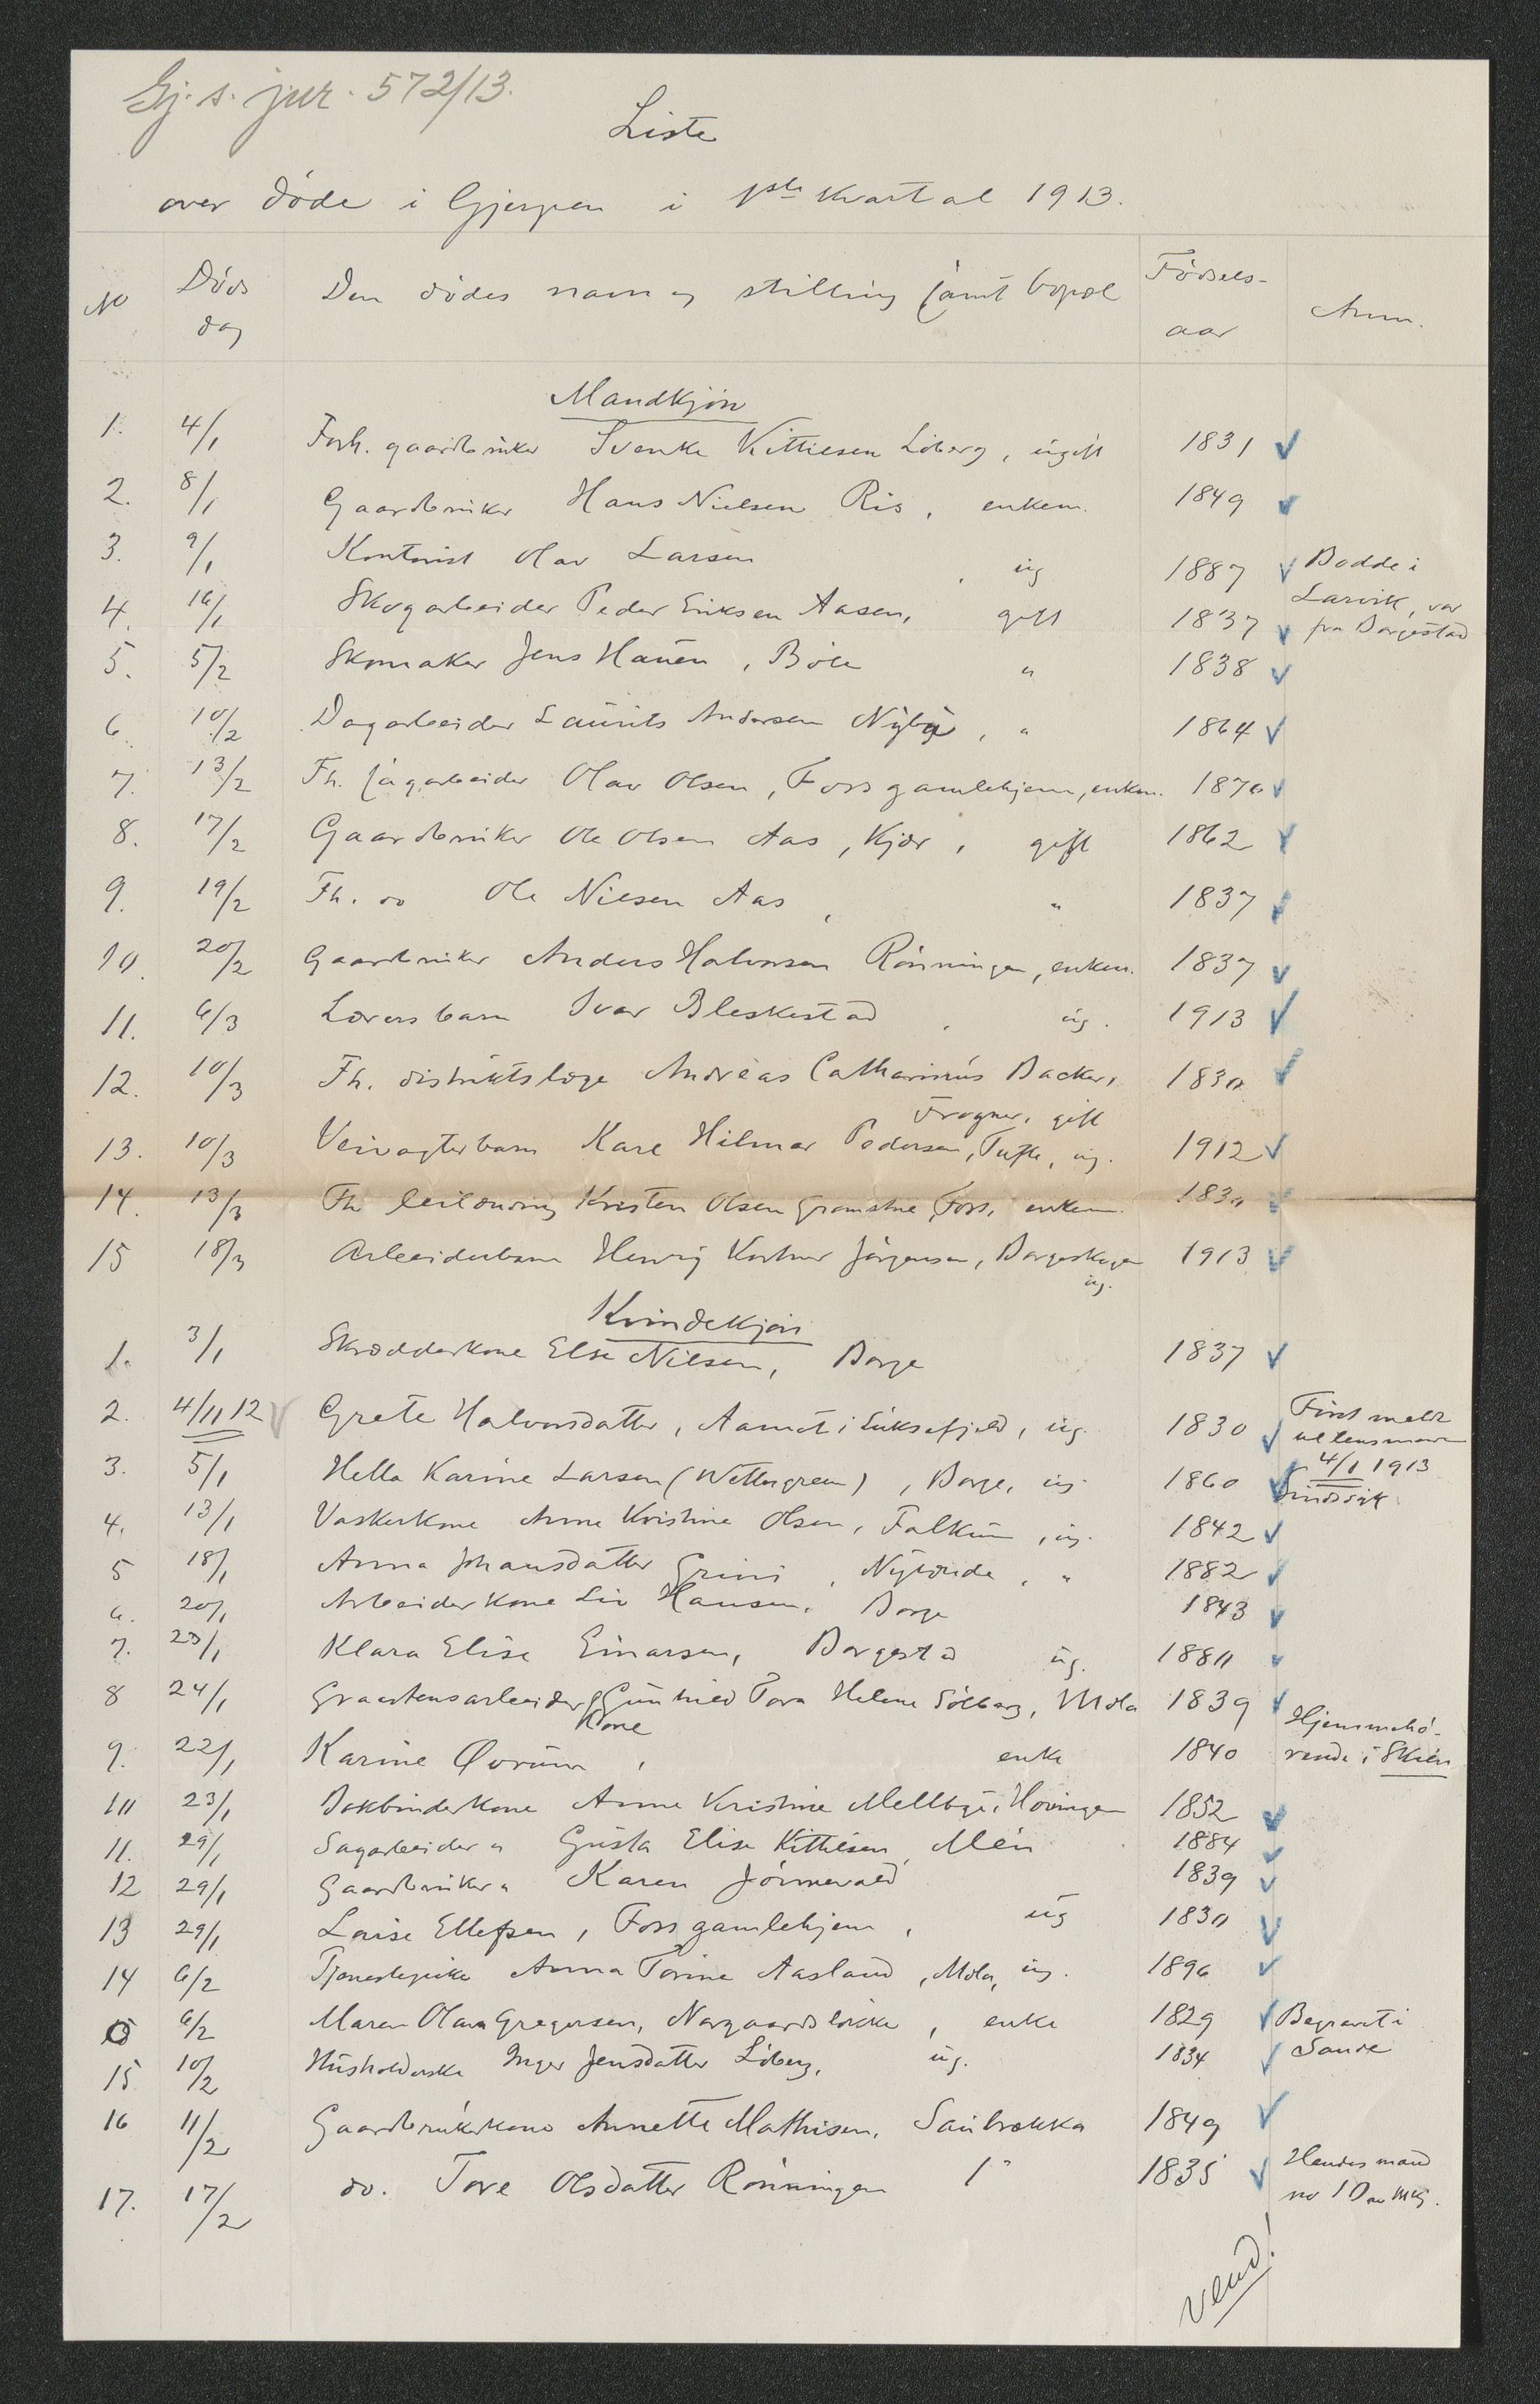 Gj. s. jur. 572/13.
Liste
over døde i Gjerpen i 1ste Kvartal 1913.
No Døds dag Den dødes navn og stilling samt bopæl Fødsels- aar Anm.
Mandkjøn
1. 4/1 Forh. gaardbruker Svenke Kittilsen Liberg, ugift 1831
2. 8/1 Gaardbruker Hans Nielsen Ris, enkem. 1849
3. 9/1 Kontorist Olav Larsen, ug 1887 Bodde i Larvik, var fra Borgestad
4. 16/1 Skogarbeider Peder Eriksen Aasen, gift 1837
5. 5/2 Skomaker Jens Hansen, Bøle " 1838
6. 10/2 Dagarbeider Laurits Andersen Nyby, " 1864
7. 13/2 Fh. sagarbeider Olav Olsen, Foss gamlehjem, enkem. 1870
8. 17/2 Gaardbruker Ole Olsen Aas, Kjær, gift 1862
9. 19/2 Fh. do Ole Nilsen Aas, " 1837
10. 20/2 Gaardbruker Anders Halvorsen Rønningen, enkem. 1837
11. 6/3 Lærers barn Ivar Bleskestad, ug. 1913
12. 10/3 Fh. distriktslæge Andreas Catharinus Backer, 1830
Frogner, gift
13. 10/3 Veivogterbarn Kare Hilmar Pedersen, Tufte, ug. 1912
14. 13/3 Fh leilænding Kristen Olsen Foss, enkem. 1830
15 18/3 Arbeiderbarn Henrij Jørgensen, Borgeskogen 1913
ug.
Kvindekjøn
1. 3/1 Skrædderkone Else Nilsen, Borge 1837
2. 4/11 12 Grete Halvorsdatter, Aamot i Luksefjeld, ug. 1830 Først meldt til lensmann 4/1 1913
3. 5/1 Hella Karine Larsen (Wettergreen), Borge, ug. 1860 Sindssyk
4. 13/1 Vaskerkone Anne Kristine Olsen, Falkum, ug. 1842
5 18/1 Anna Johansdatter Grini, Nylænde, " 1882
6. 20/1 Arbeiderkone Liv Hansen, Borge 1843
7. 23/1 Klara Elise Einarsen, Borgestad ug. 1880
8 24/1 Graastensarbeider Gunhild Tora Helene Solberg, Mæla 1839
Kone
9. 22/1 Karine Øvrum, enke 1840 Hjemmehørende i Skien
10 23/1 Bokbinderkone Anne Kristine Mellbye, Hovingen 1852
11. 29/1 Sagarbeider " Gusta Elise Kittilsen, Mén 1884
12 29/1 Gaardbruker " Karen Jønnevald 1839
13 29/1 Lovise Ellefsen, Foss gamlehjem, ug 1830
14 6/2 Tjenestepike Anna Torine Aasland, Mæla, ug. 1896
6/2 Maren Olava Gregersen, Norgaardsløkka, enke 1829 Begravet i Sande
15 10/2 Husholderske Inger Jensdatter Liberg, ug. 1834
16 11/2 Gaardbrukerkone Annette Mathisen, Saubrækka 1849
17. 17/2 do. Tore Olsdatter Rønningen 1835 Hendes mand no 10 av Mkj.
vend!